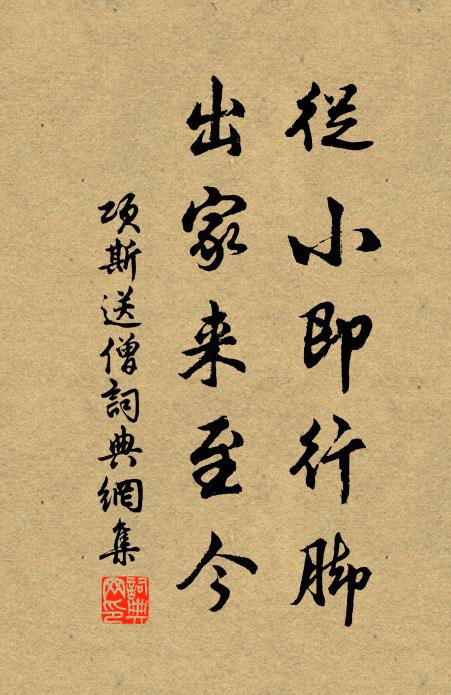 從小即行脚
出家来至今
項斯送僧詞典網集
詞典网印